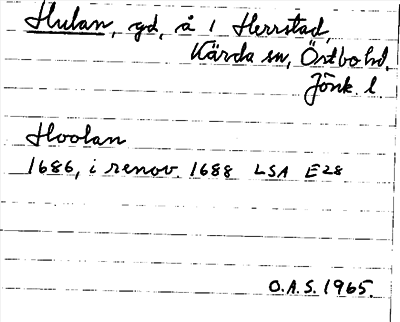 Hulan, gd, å 1 Herrstad,
Kärda sn, Östbo hd,
Jönk. l.
Hoolan
1686, i renov. 1688 LSA E28
O.A.S. 1965.